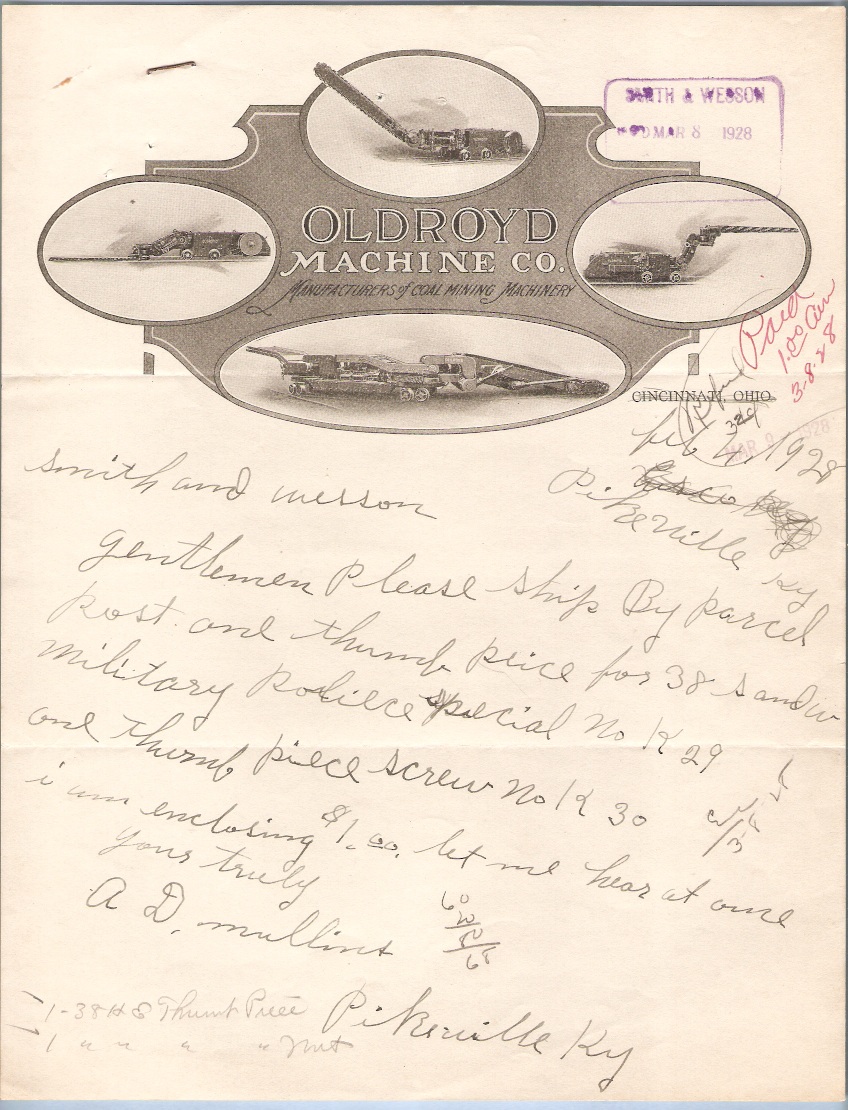 SMITH & WESSON
MAR 8 1928
OLDROYD
MACHINE CO.
MANUFACTURERS of COAL MINING MACHINERY
Paid
1.00
3-8-28
CINCINNATI, OHIO.
MAR 9 1928
feb 4, 1928
smith and wesson
Pikeville Ky
gentlemen Please ship By parcel
post one thumb peice for 38 s and w
military poliece special No K 29
one thumb piece screw No K 30
3-8-28
i am enclosing $1.00. let me hear at once
yours truly
A D. mullins
Pikeville Ky
1-38 H E Thumb Piece
1 " " " " Nut